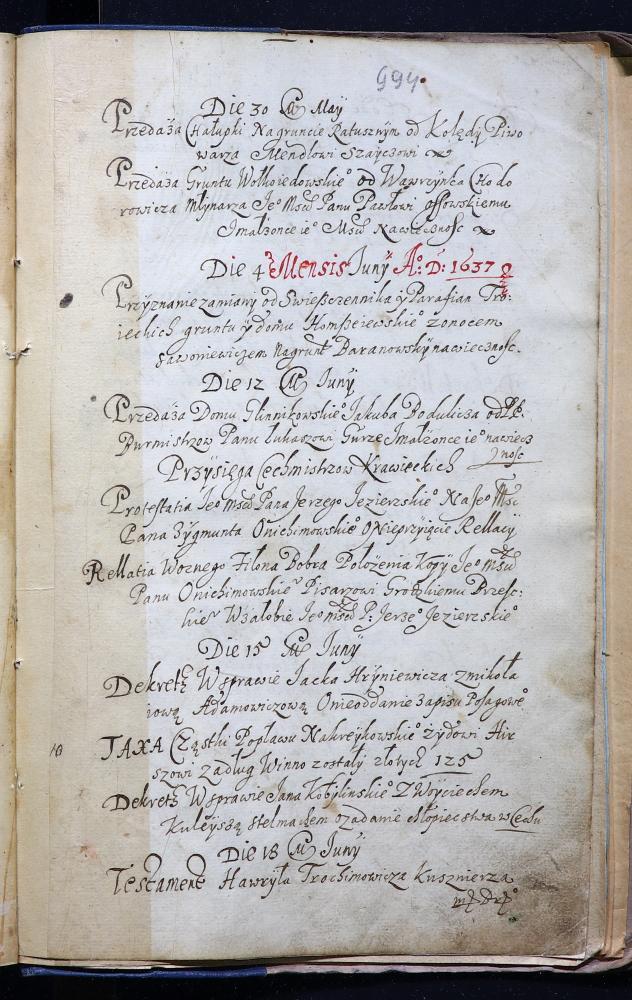 994.
Die 30 M May
Przedaża Chałupki Na gruncie Ratusznym od Kolędy Piwo
warza Mendlowi Szayczowi
Przedaża Gruntu Wołkoiedowskie° od Wawrzynca Cho do
rowicza Młynarza Je° Mscd Panu Pawłowi Ossowskiemu
Imałżonce ie° Mscd Nawiecznosc
Die 4 Mensis Juny A°: D: 1637
Przyznanie zamiany od Swiesczennika y Parafian Tro:
ieckich gruntu y domu Hom zonocem
Sawoniewiczem Nagrunt Baranowsky nawiecznosc.
Die 12 M Juny
Przedaża Domu Glinnikowskie° Jakuba Bodulicza od PP.
Burmistrzow Panu Łukaszowi Gurze Imałzonce ie° nawiecz
nosc
Przysięga Cechmistrzow Krawieckich
Protestatia Jeo Mscd Pana Jerzego Jezierzskie° Na Je° Msc
Pana Zygmunta Onichimowskie° O Nieprzyięcie Rellacy
Rellatia Woznego Filona Bobra Położenia Kopy Je° Mscd
Panu Onichimowskie° Pisarzowi Grodzkiemu Brzesc:
kie° W żałobie Jeo mscd P: Jerze° Jezierzskie°
Die 15 M Juny
Dekret W sprawie Jacka Hryniewicza z mikoła
iową Adamowiczową O nieoddanie Zapisu Posagowe°
10 TAXA Cząstki Popławu Nakreykowskie° żydowi Hir
szowi za dług Winno zostały złotych 125
Dekret W sprawie Jana Kobylinskie° Z Woyciechem
Kuleyszą stelmachem o zadanie chłopiecstwa w Cechu
Die 18 M Juny
Testament Hawryła Trochimowicza Kusznierza